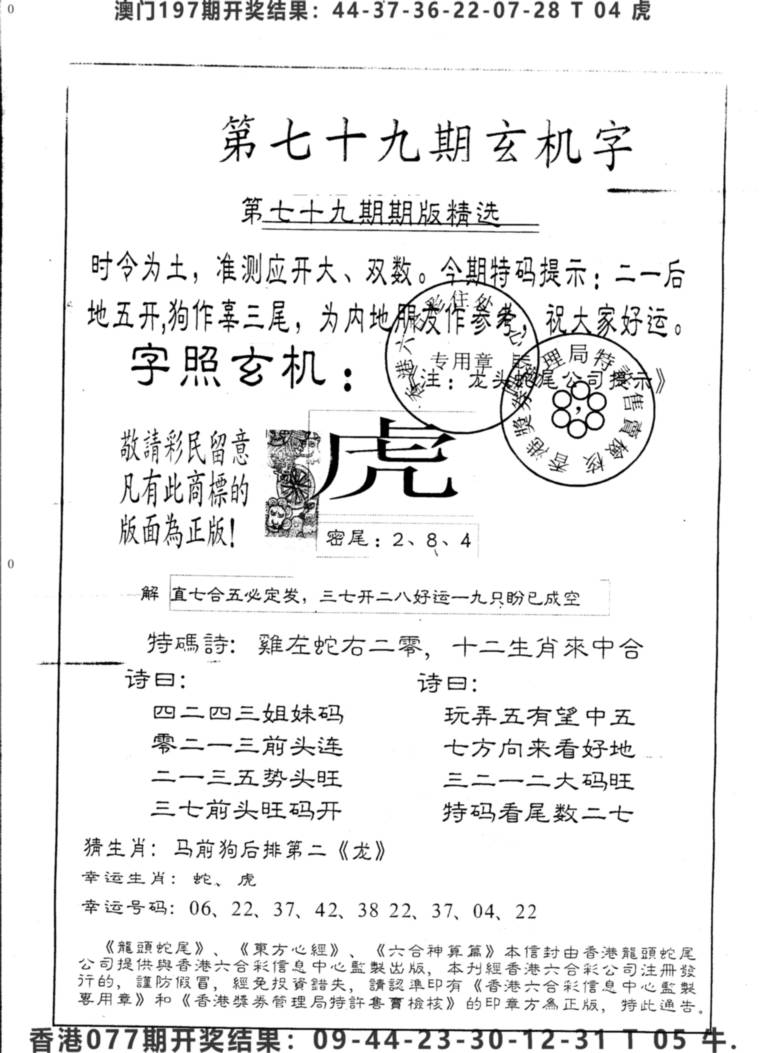 0
澳门197期开奖结果：44-37-36-22-07-28 T 04 虎
第七十九期玄机字
第七十九期期版精选
时令为土，准测应开大、双数。今期特码提示：二一后
地五开,狗作辜三尾，为内地朋友作参考，祝大家好运。
字照玄机：
《注：龙头蛇尾公司提示》
专用章
敬請彩民留意
凡有此商標的
版面為正版!
虎
密尾：2、8、4
0
解 直七合五必定发，三七开二八好运一九只盼已成空
特碼詩：雞左蛇右二零，十二生肖來中合
诗曰：
四二四三姐妹码
零二一三前头连
二一三五势头旺
三七前头旺码开
诗曰：
玩弄五有望中五
七方向来看好地
三二一二大码旺
特码看尾数二七
猜生肖：马前狗后排第二《龙》
幸运生肖：蛇、虎
幸运号码：06、22、37、42、38 22、37、04、22
《龍頭蛇尾》、《東方心經》、《六合神算篇》本信封由香港龍頭蛇尾
公司提供與香港六合彩信息中心監製出版，本刊經香港六合彩公司注冊發
行的，謹防假冒，經免投資錯失，請認準印有《香港六合彩信息中心監製
專用章》和《香港獎券管理局特許售賣檢核》的印章方為正版，特此通告。
香港077期开奖结果：09-44-23-30-12-31 T 05 牛.